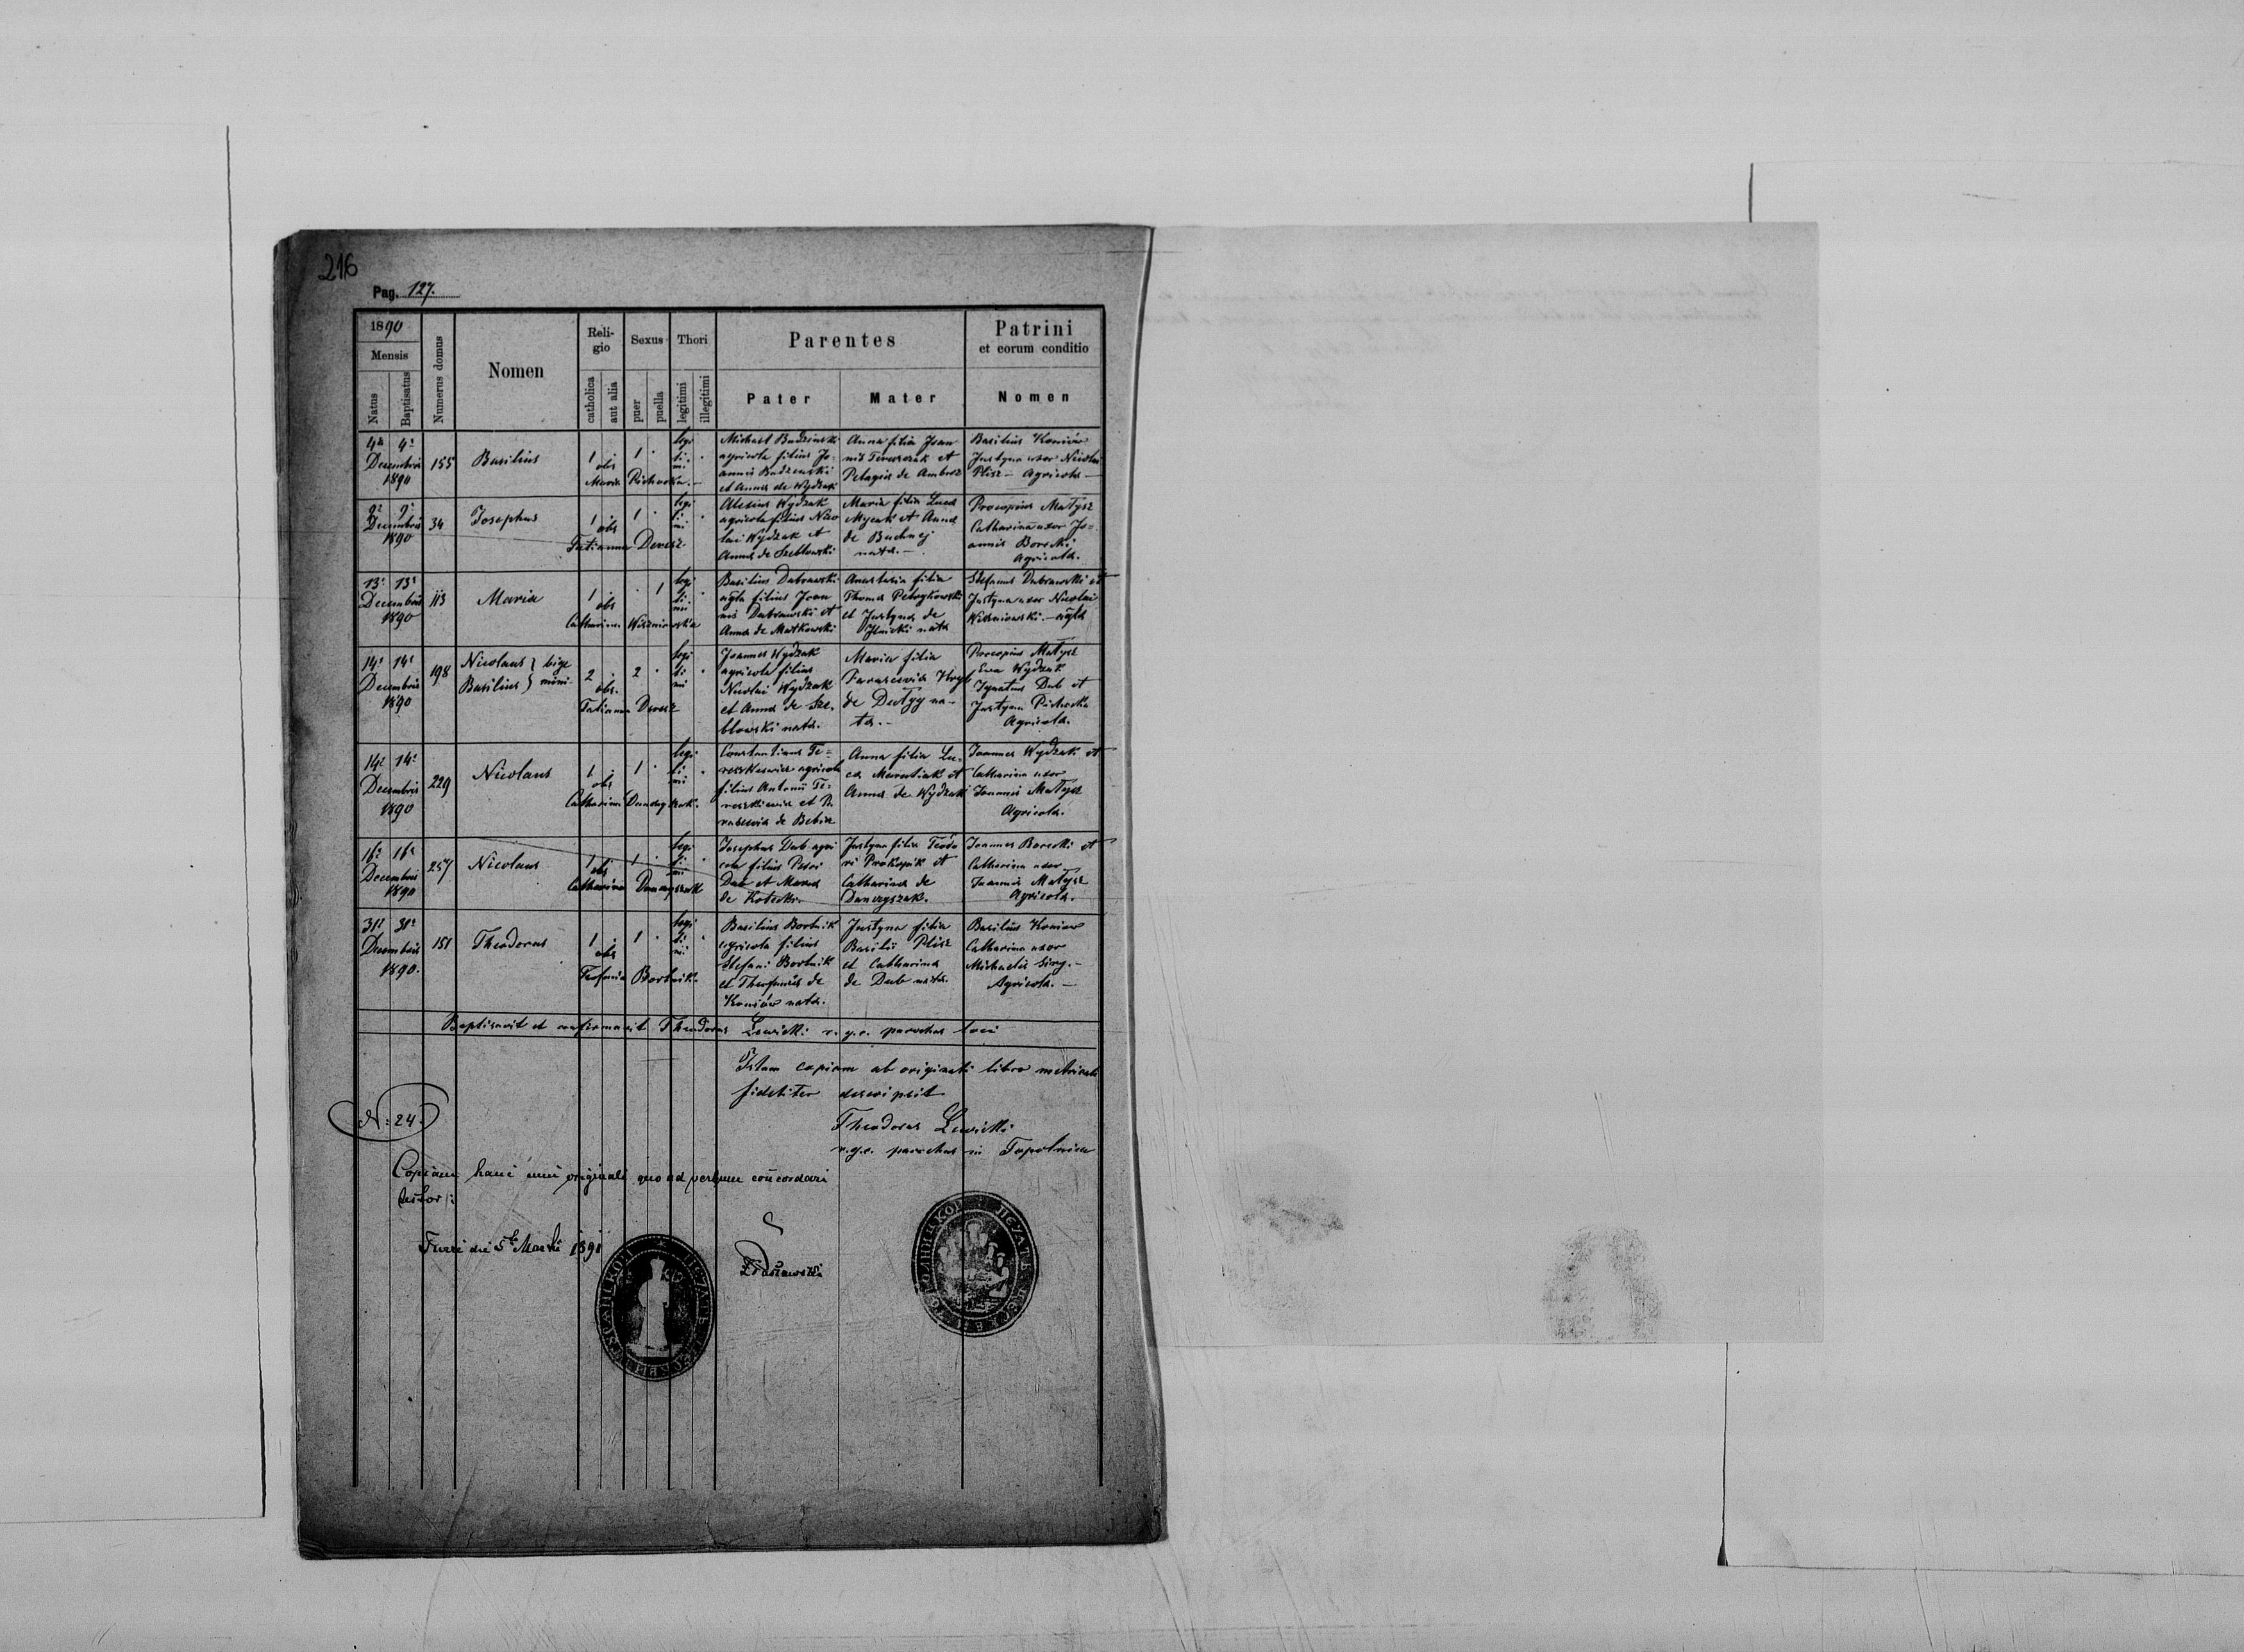 216
Pag. 127.
1890
Mensis
Natus
Baptisatus
Numerus domus
Nomen
Reli-
gio
catholica
aut alia
Sexus
puer
puella
Thori
legitimi
illegitimi
Parentes
Pater
Mater
Patrini
et eorum conditio
Nomen
4a 4a
Decembris
1890
155
Basilius
1
obs
Maria Pichocka.
1
legi
ti
mi
Michael Budzinski
agricola filius Jo-
annis Budzinski
et Anna de Wydzak
Anna filia Joan
nis Tereszczak et
Pelagia de Ambroz
Basilius Koniów
Justyna uxor Nicolai
Plisz - Agricola
9a 9a
Decembris
1890
34
Josephus
1
obs
Tatianna Deresz
1
legi
ti
mi
Alexius Wydzak
agricola filius Nico
lai Wydzak et
Anna de Szeblowski
Maria filia Luca
Mycak et Anna
de Buchaj
nata.
Procopius Matysz
Catharina uxor Jo-
annis Borecki
Agricola.
13a 13a
Decembris
1890
113
Maria
1
obs
Catharina Wiszniowska
1
legi
ti
mi
Basilius Dubrawski
agla filius Joan
nis Dubrawski et
Anna de Matkowski
Anastasia filia
Thoma Petrykowski
et Justyna de
Ilnicki nata
Stefanus Dubrawski et
Justyna uxor Nicolai
Wiszniowski. - agla
14a 14a
Decembris
1890
198
Nicolaus } bige
Basilius } mini
2
obs.
Tatianna Deresz
2
legi
ti
mi
Joannes Wydzak
agricola filius
Nicolai Wydzak
et Anna de Sze-
blowski nata.
Maria filia
Parascevia Hryb
de Dutyy na-
ta.
Procopius Matysz
Eva Wydzak
Ignatius Dub et
Justyna Pichocka
Agricola.
14a 14a
Decembris
1890
229
Nicolaus
1
obs
Catharina Danczyszak.
1
legi
ti
mi
Constantinus Te-
reszkiewicz agricola
filius Antonii Te-
reszkiewicz et Pa
rascevia de Bebin
Anna filia Lu-
ca Marutiak et
Anna de Wydzak
Joannes Wydzak et
Catharina uxor
Joannis Matysz
Agricola.
16a 16a
Decembris
1890
257
Nicolaus
1
obs
Catharina Danczyszak
1
legi
ti
mi
Josephus Dub agri
cola filius Petri
Dub et Maria
de Kotecki.
Justyna filia Teodo
ri Prokopik et
Catharina de
Danczyszak.
Joannes Borecki et
Catharina uxor
Joannis Matysz
Agricola.
31a 31a
Decembris
1890.
151
Theodorus
1
obs
Teofania Bortnik.
1
legi
ti
mi
Basilius Bortnik
agricola filius
Stefani Bortnik
et Theofania de
Koniów nata.
Justyna filia
Basilii Plisz
et Catharina
de Dub nata.
Basilius Koniow
Catharina uxor
Michaelis Siry.
Agricola.
Baptisavit et confirmavit Theodorus Lewicki r. g. c. parochus loci
Istam copiam ab originali libro metricali
fideliter descripsit
N: 24.
Theodorus Lewicki
r. g. c. parochus in Topolnica
Copiam hanc cum originali quo ad verbum concordare
testor:
Turze die 5 Martii 1891